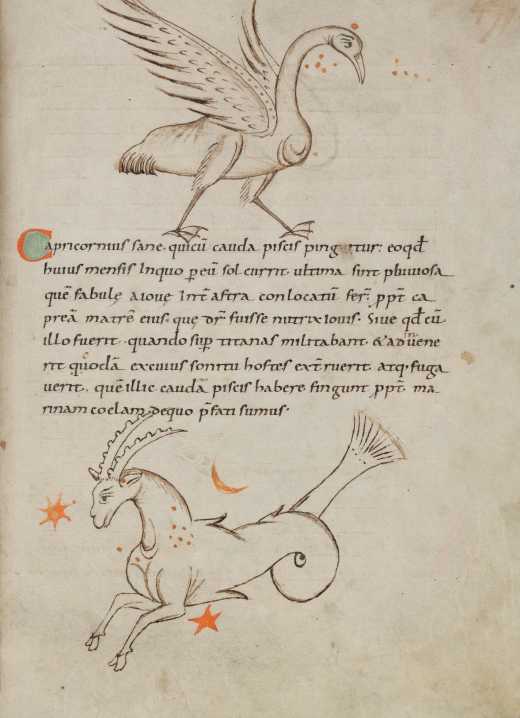 Capricornius sane. quicū cauda piscis pingitur; eoqđ
huius mensis Inquo p eū sol currit. ultima sint pluuiosa
quē fabulę aioue Int̄ astra conlocatū fer̄. ꝓpt̄ ca
preā matrē eius. quę dr̄ fuisse nutrix iouis. Siue qđ cū
illo fuerit. quando sup̄ titanas militabant. & aduene
rit quodā excuius sonitu hostes ext̄ruerit. atq; fuga
uerit. quē illic caudā piscis habere fingunt ꝓpt̄ ma
rinam coclam. dequo p̄fati sumus.